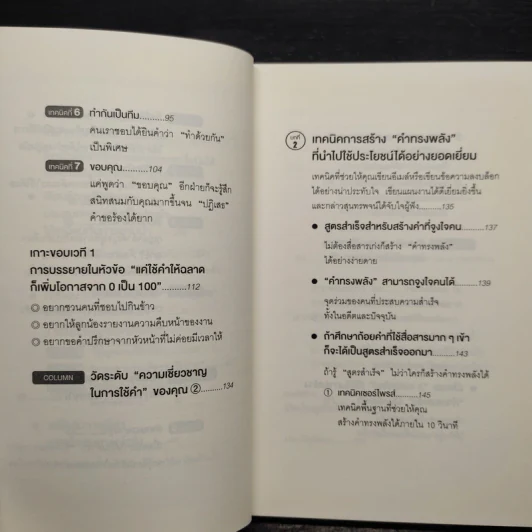 เทคนิคที่ 6 ทำกันเป็นทีม..........95
คนเราชอบได้ยินคำว่า "ทำด้วยกัน"
เป็นพิเศษ
เทคนิคที่ 7 ขอบคุณ..........104
แค่พูดว่า "ขอบคุณ" อีกฝ่ายก็จะรู้สึก
สนิทสนมกับคุณมากขึ้นจน "ปฏิเสธ"
คำขอร้องได้ยาก
เกาะขอบเวที 1
การบรรยายในหัวข้อ "แค่ใช้คำให้ฉลาด
ก็เพิ่มโอกาสจาก 0 เป็น 100"..........112
◎ อยากชวนคนที่ชอบไปกินข้าว
◎ อยากให้ลูกน้องรายงานความคืบหน้าของงาน
◎ อยากขอคำปรึกษาจากหัวหน้าที่ไม่ค่อยมีเวลาให้
COLUMN วัดระดับ "ความเชี่ยวชาญ
ในการใช้คำ" ของคุณ ②..........134
บทที่ 2 เทคนิคการสร้าง "คำทรงพลัง"
ที่นำไปใช้ประโยชน์ได้อย่างยอดเยี่ยม
เทคนิคที่ช่วยให้คุณเขียนอีเมล์หรือเขียนข้อความลงบล็อก
ได้อย่างน่าประทับใจ เขียนแผนงานได้ดีเยี่ยมยิ่งขึ้น
และกล่าวสุนทรพจน์ได้จับใจผู้ฟัง..........135
● สูตรสำเร็จสำหรับสร้างคำที่จูงใจคน..........137
ไม่ต้องสื่อสารเก่งก็สร้าง "คำทรงพลัง"
ได้อย่างง่ายดาย
● "คำทรงพลัง" สามารถจูงใจคนได้..........139
จุดร่วมของคนที่ประสบความสำเร็จ
ทั้งในอดีตและปัจจุบัน
● ถ้าศึกษาถ้อยคำที่ใช้สื่อสารมาก ๆ เข้า
ก็จะได้เป็นสูตรสำเร็จออกมา..........143
ถ้ารู้ "สูตรสำเร็จ" ไม่ว่าใครก็สร้างคำทรงพลังได้
① เทคนิคเซอร์ไพรส์..........145
เทคนิคพื้นฐานที่ช่วยให้คุณ
สร้างคำทรงพลังได้ภายใน 10 วินาที